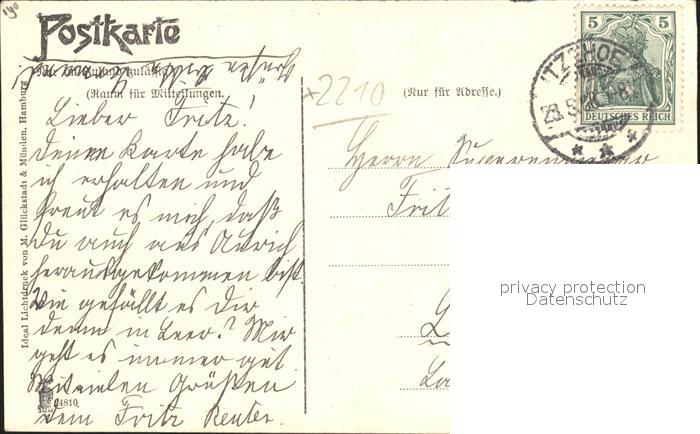 Postkarte
(Raum für Mitteilungen.
(Nur für Adresse.)
2210
5 5
DEUTSCHES REICH
ITZEHOE
Lieber Fritz!
Deine Karte habe
ich erhalten und
freut es mich, daß
du auch aus Aurich
herausgekommen bist.
Wie gefällt es dir
denn in Leer? Mir
geht es immer gut.
Mit vielen Grüßen
dein Fritz Reuter.
Herrn
Fritz
Ideal Lichtdruck von M. Glückstadt & Münden, Hamburg
24810.
privacy protection
Datenschutz